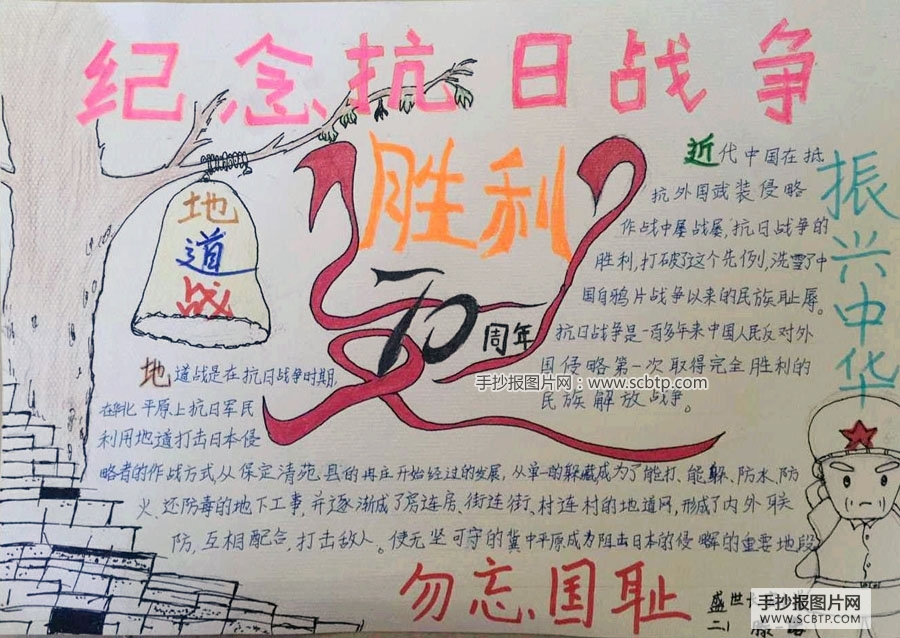 纪念抗日战争
胜利
70周年
地
道
战
近代中国在抵
抗外国武装侵略
作战中屡战屡,抗日战争的
胜利,打破了这个先例,洗雪了中
国自鸦片战争以来的民族耻辱。
抗日战争是一百多年来中国人民反对外
国侵略第一次取得完全胜利的
民族解放战争。
振兴中华
手抄报图片网:www.scbtp.com
地道战是在抗日战争时期,
在华北平原上抗日军民
利用地道打击日本侵
略者的作战方式,从保定清苑县的冉庄开始经过的发展,从单一的躲藏成为了能打、能躲、防水、防
火、还防毒的地下工事,并逐渐成了房连房、街连街、村连村的地道网,形成了内外联
防,互相配合,打击敌人。使无坚可守的冀中平原成为阻击日本的侵略的重要地段
勿忘国耻
盛世
二
手抄报图片网
WWW.SCBTP.COM